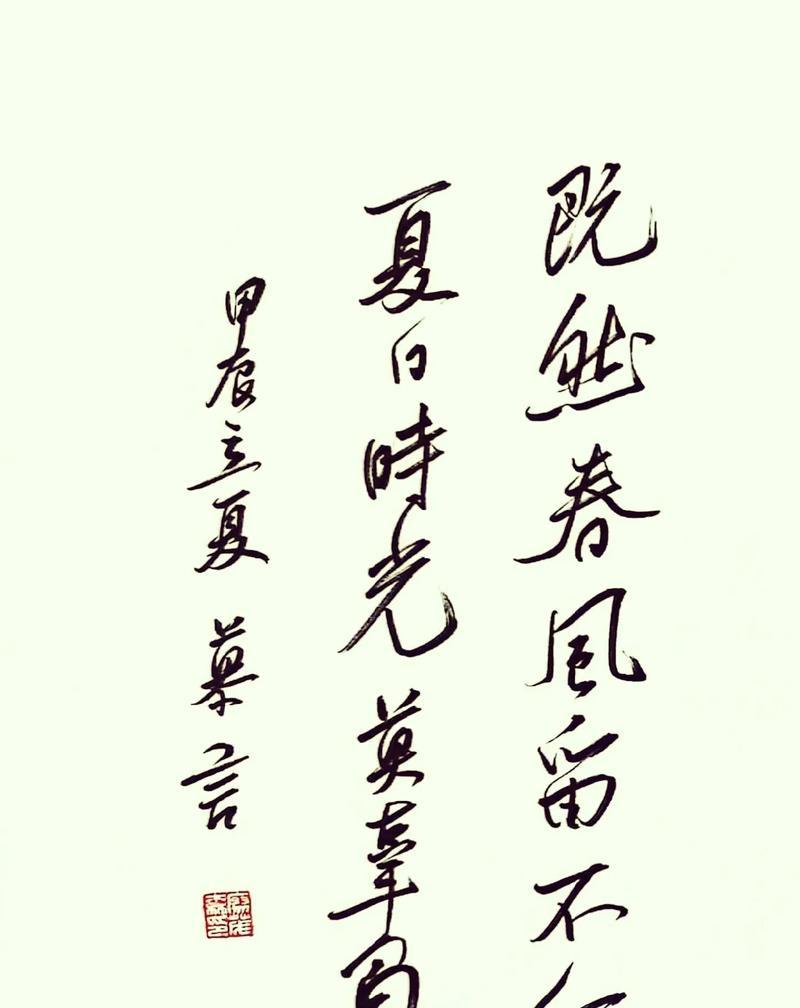 既然春風留不
夏日時光莫辜
甲辰立夏 慕言